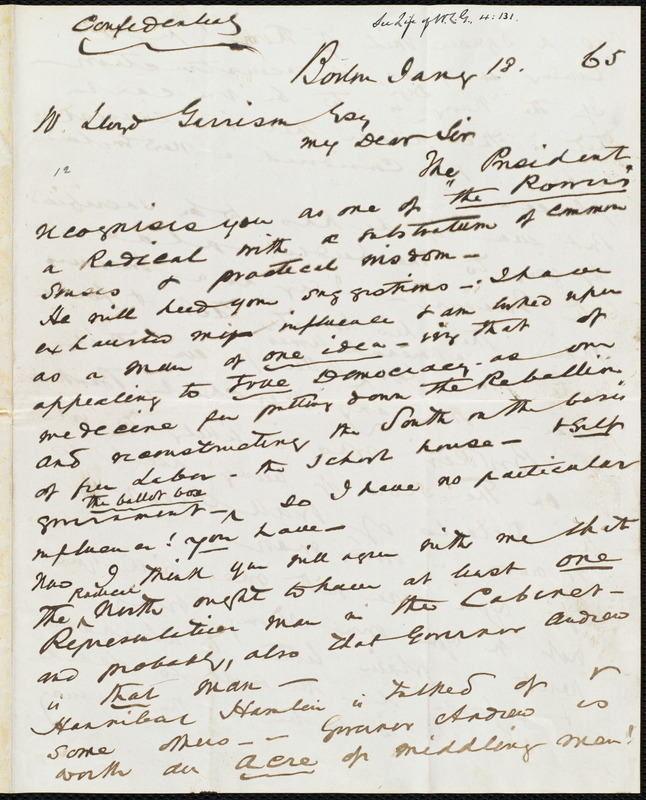 Confidential
See Life of W.L.G. 4: 131.
Boston Jany 18. 65
W. Lloyd Garrison Esq
My Dear Sir
12
The President
recognises you as one of "the Powers"
a Radical with a substratum of common
sense & practical wisdom—
He will heed your suggestions—. I have
exhausted my influence & am looked upon
as a man of one idea— viz that of
appealing to True Democracy as our
medecine for putting down the Rebellion
and reconstructing the South on the basis
of free Labor— the School house— & Self
the ballot box
government— ^ So I have no particular
influence! You have—
Now I think you will agree with me that
Radical
the ^ North ought to have at least one
Representative man in the Cabinet—
and probably, also that Governor Andrew
is that man—
Hannibal Hamlin is talked of &
some others— Governor Andrew is
worth an acre of middling men!